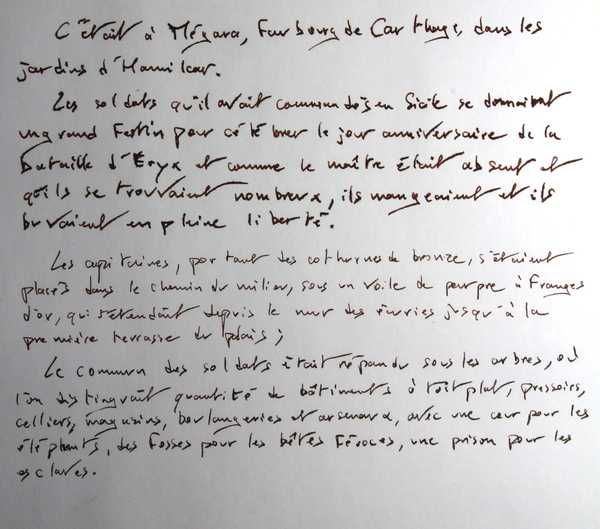 C'était à Mégara, faubourg de Carthage, dans les
jardins d'Hamilcar.
Les soldats qu'il avait commandés en Sicile se donnaient
un grand festin pour célébrer le jour anniversaire de la
bataille d'Eryx et comme le maître était absent et
qu'ils se trouvaient nombreux, ils mangeaient et ils
buvaient en pleine liberté.
Les capitaines, portant des cothurnes de bronze, s'étaient
placés dans le chemin du milieu, sous un voile de pourpre à franges
d'or, qui s'étendait depuis le mur des écuries jusqu'à la
première terrasse du palais ;
Le commun des soldats était répandu sous les arbres, où
l'on distinguait quantité de bâtiments à toit plat, pressoirs,
celliers, magasins, boulangeries et arsenaux, avec une cour pour les
éléphants, des fosses pour les bêtes féroces, une prison pour les
esclaves.